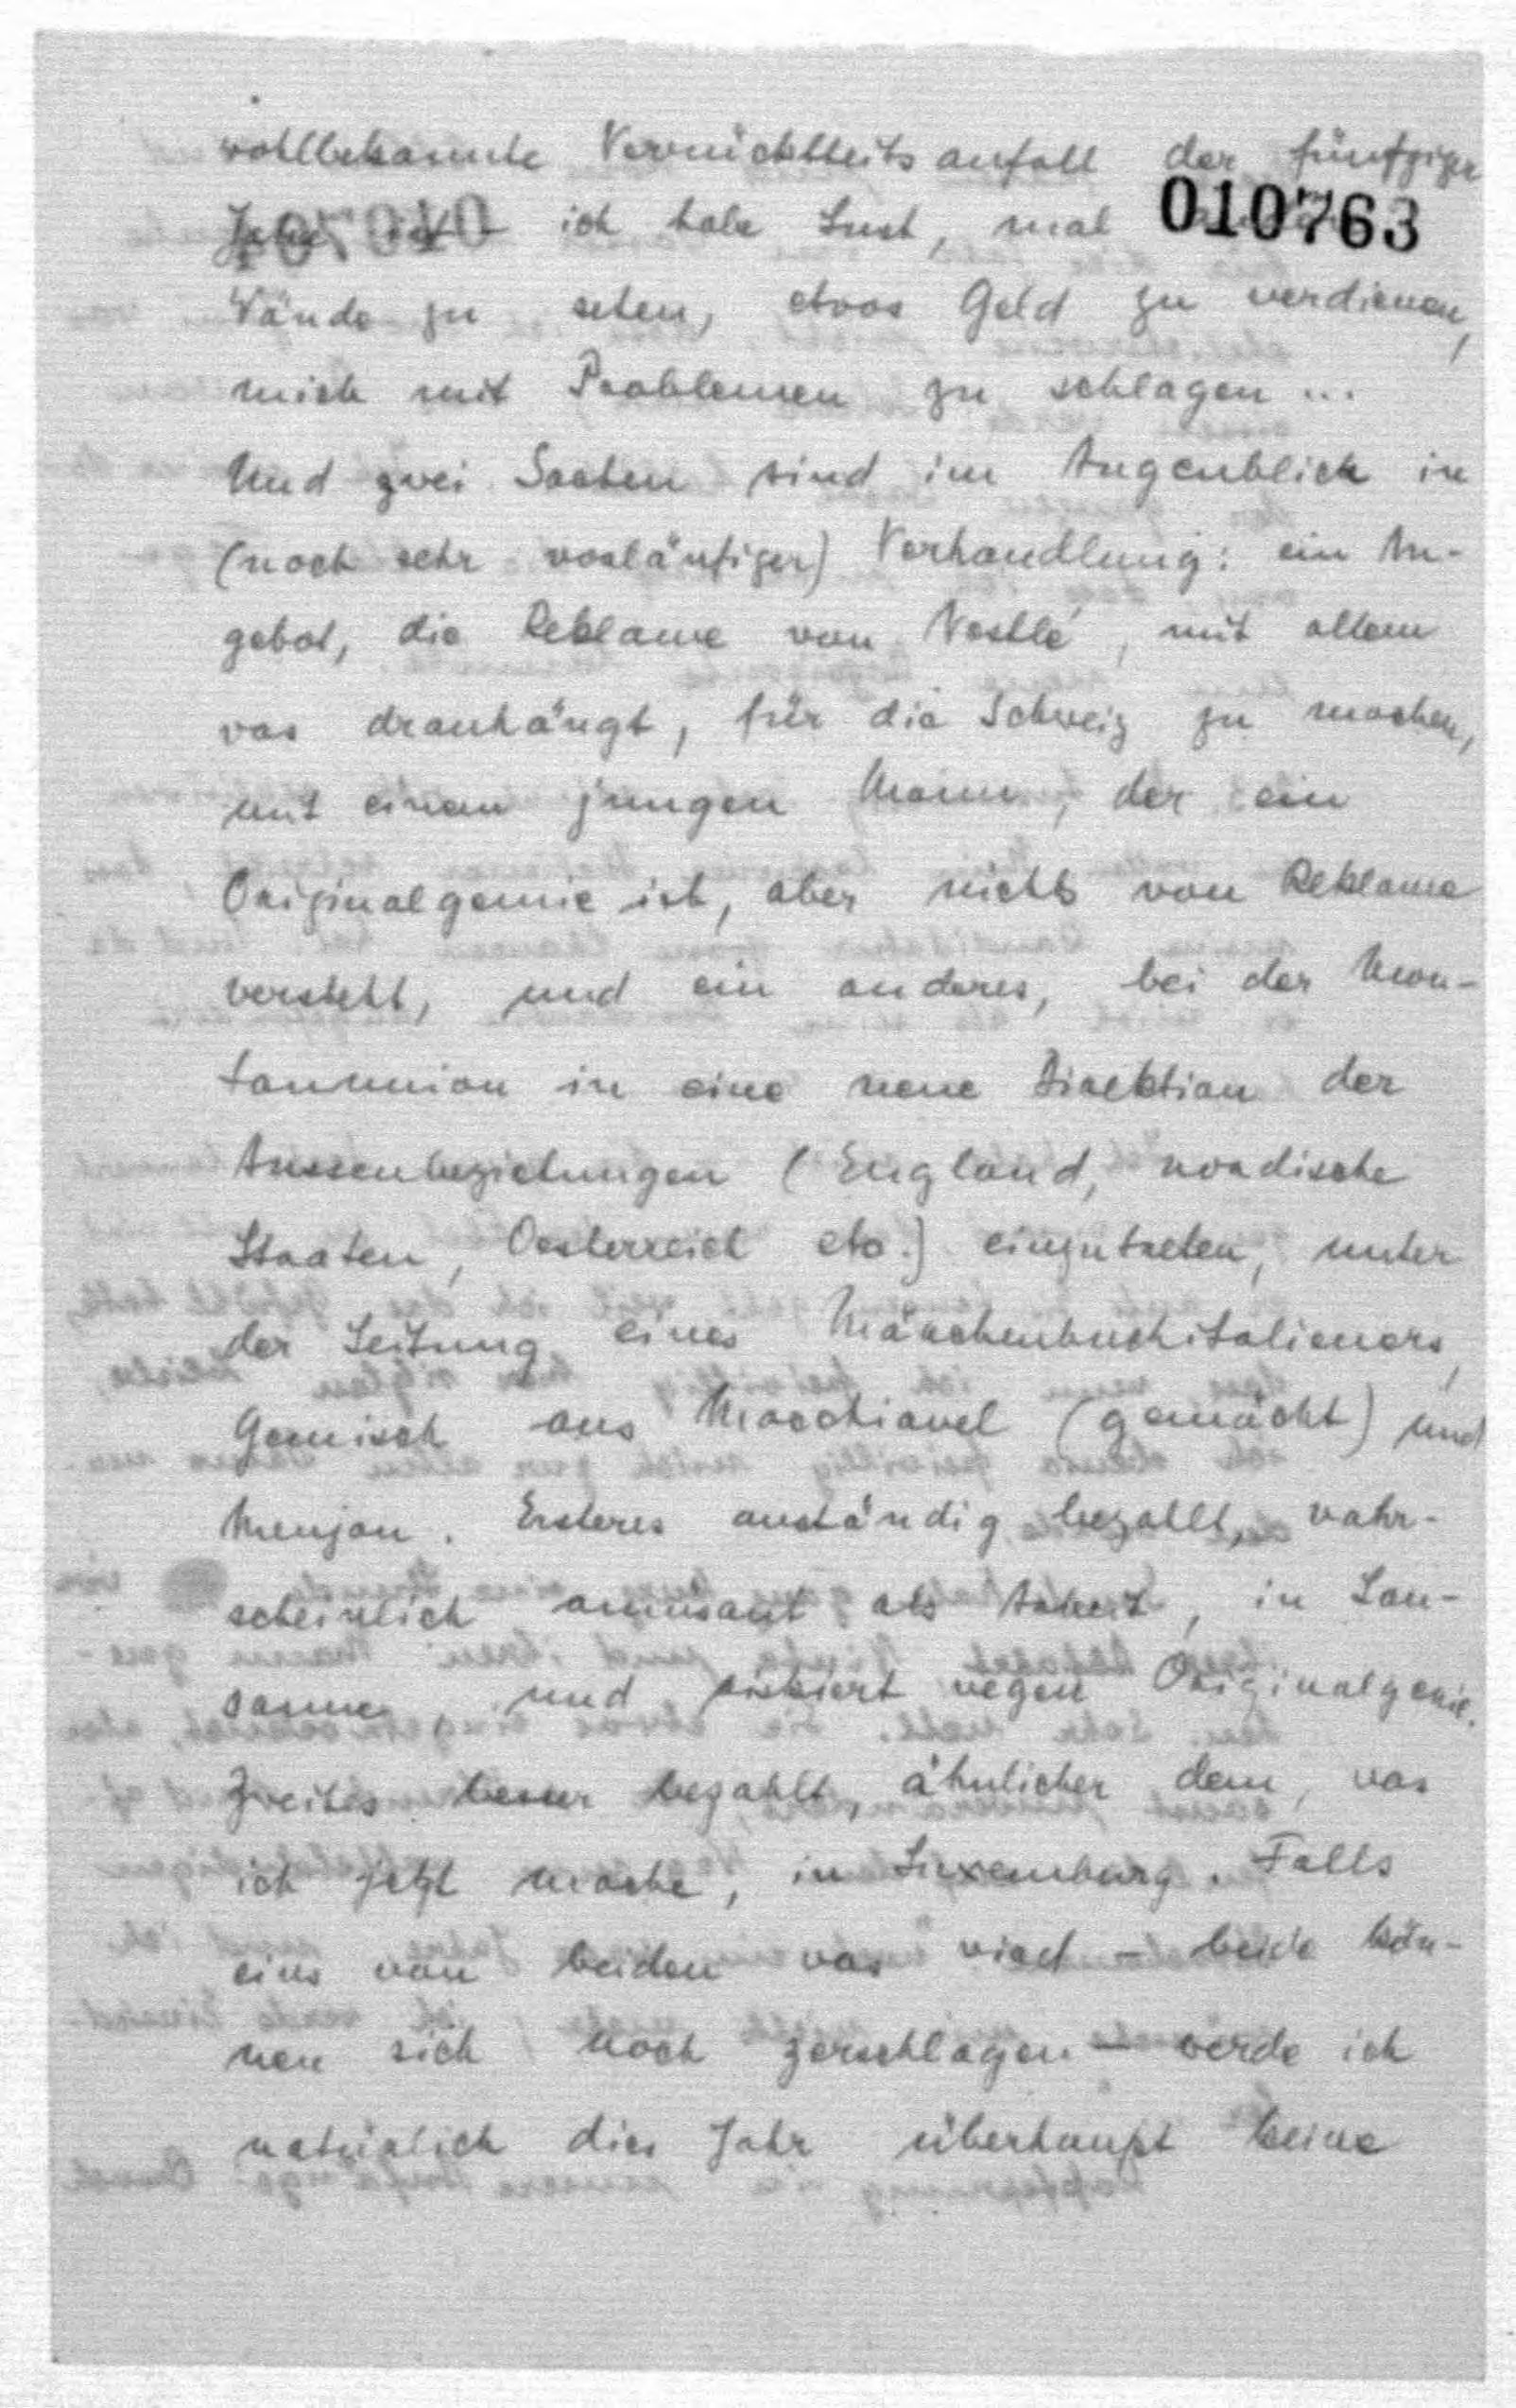 wohlbekannte Verrücktheitsanfall der fünfziger
Jahre ist - ich habe Lust, mal 010763
Wände zu sehen, etwas Geld zu verdienen,
mich mit Problemen zu schlagen ...
Und zwei Sachen sind im Augenblick in
(noch sehr vorläufiger) Verhandlung: ein An-
gebot, die Reklame von Nestlé, mit allem
was dranhängt, für die Schweiz zu machen,
mit einem jungen Mann, der ein
Originalgenie ist, aber nichts von Reklame
versteht, und ein anderes, bei der Mon-
tanunion in eine neue Direktion der
Aussenbeziehungen (England, nordische
Staaten, Oesterreich etc.) einzutreten, unter
der Leitung eines Märchenbuchitalieners,
Gemisch aus Macchiavel (gemacht) und
Menjou. Ersteres anständig bezahlt, wahr-
scheinlich amusant als Arbeit, in Lau-
sanne, und riskiert wegen Originalgenie.
Zweites besser bezahlt, ähnlicher dem, was
ich jetzt mache, in Luxemburg. Falls
eins von beiden was wird - beide kön-
nen sich noch zerschlagen - werde ich
natürlich dies Jahr überhaupt keine